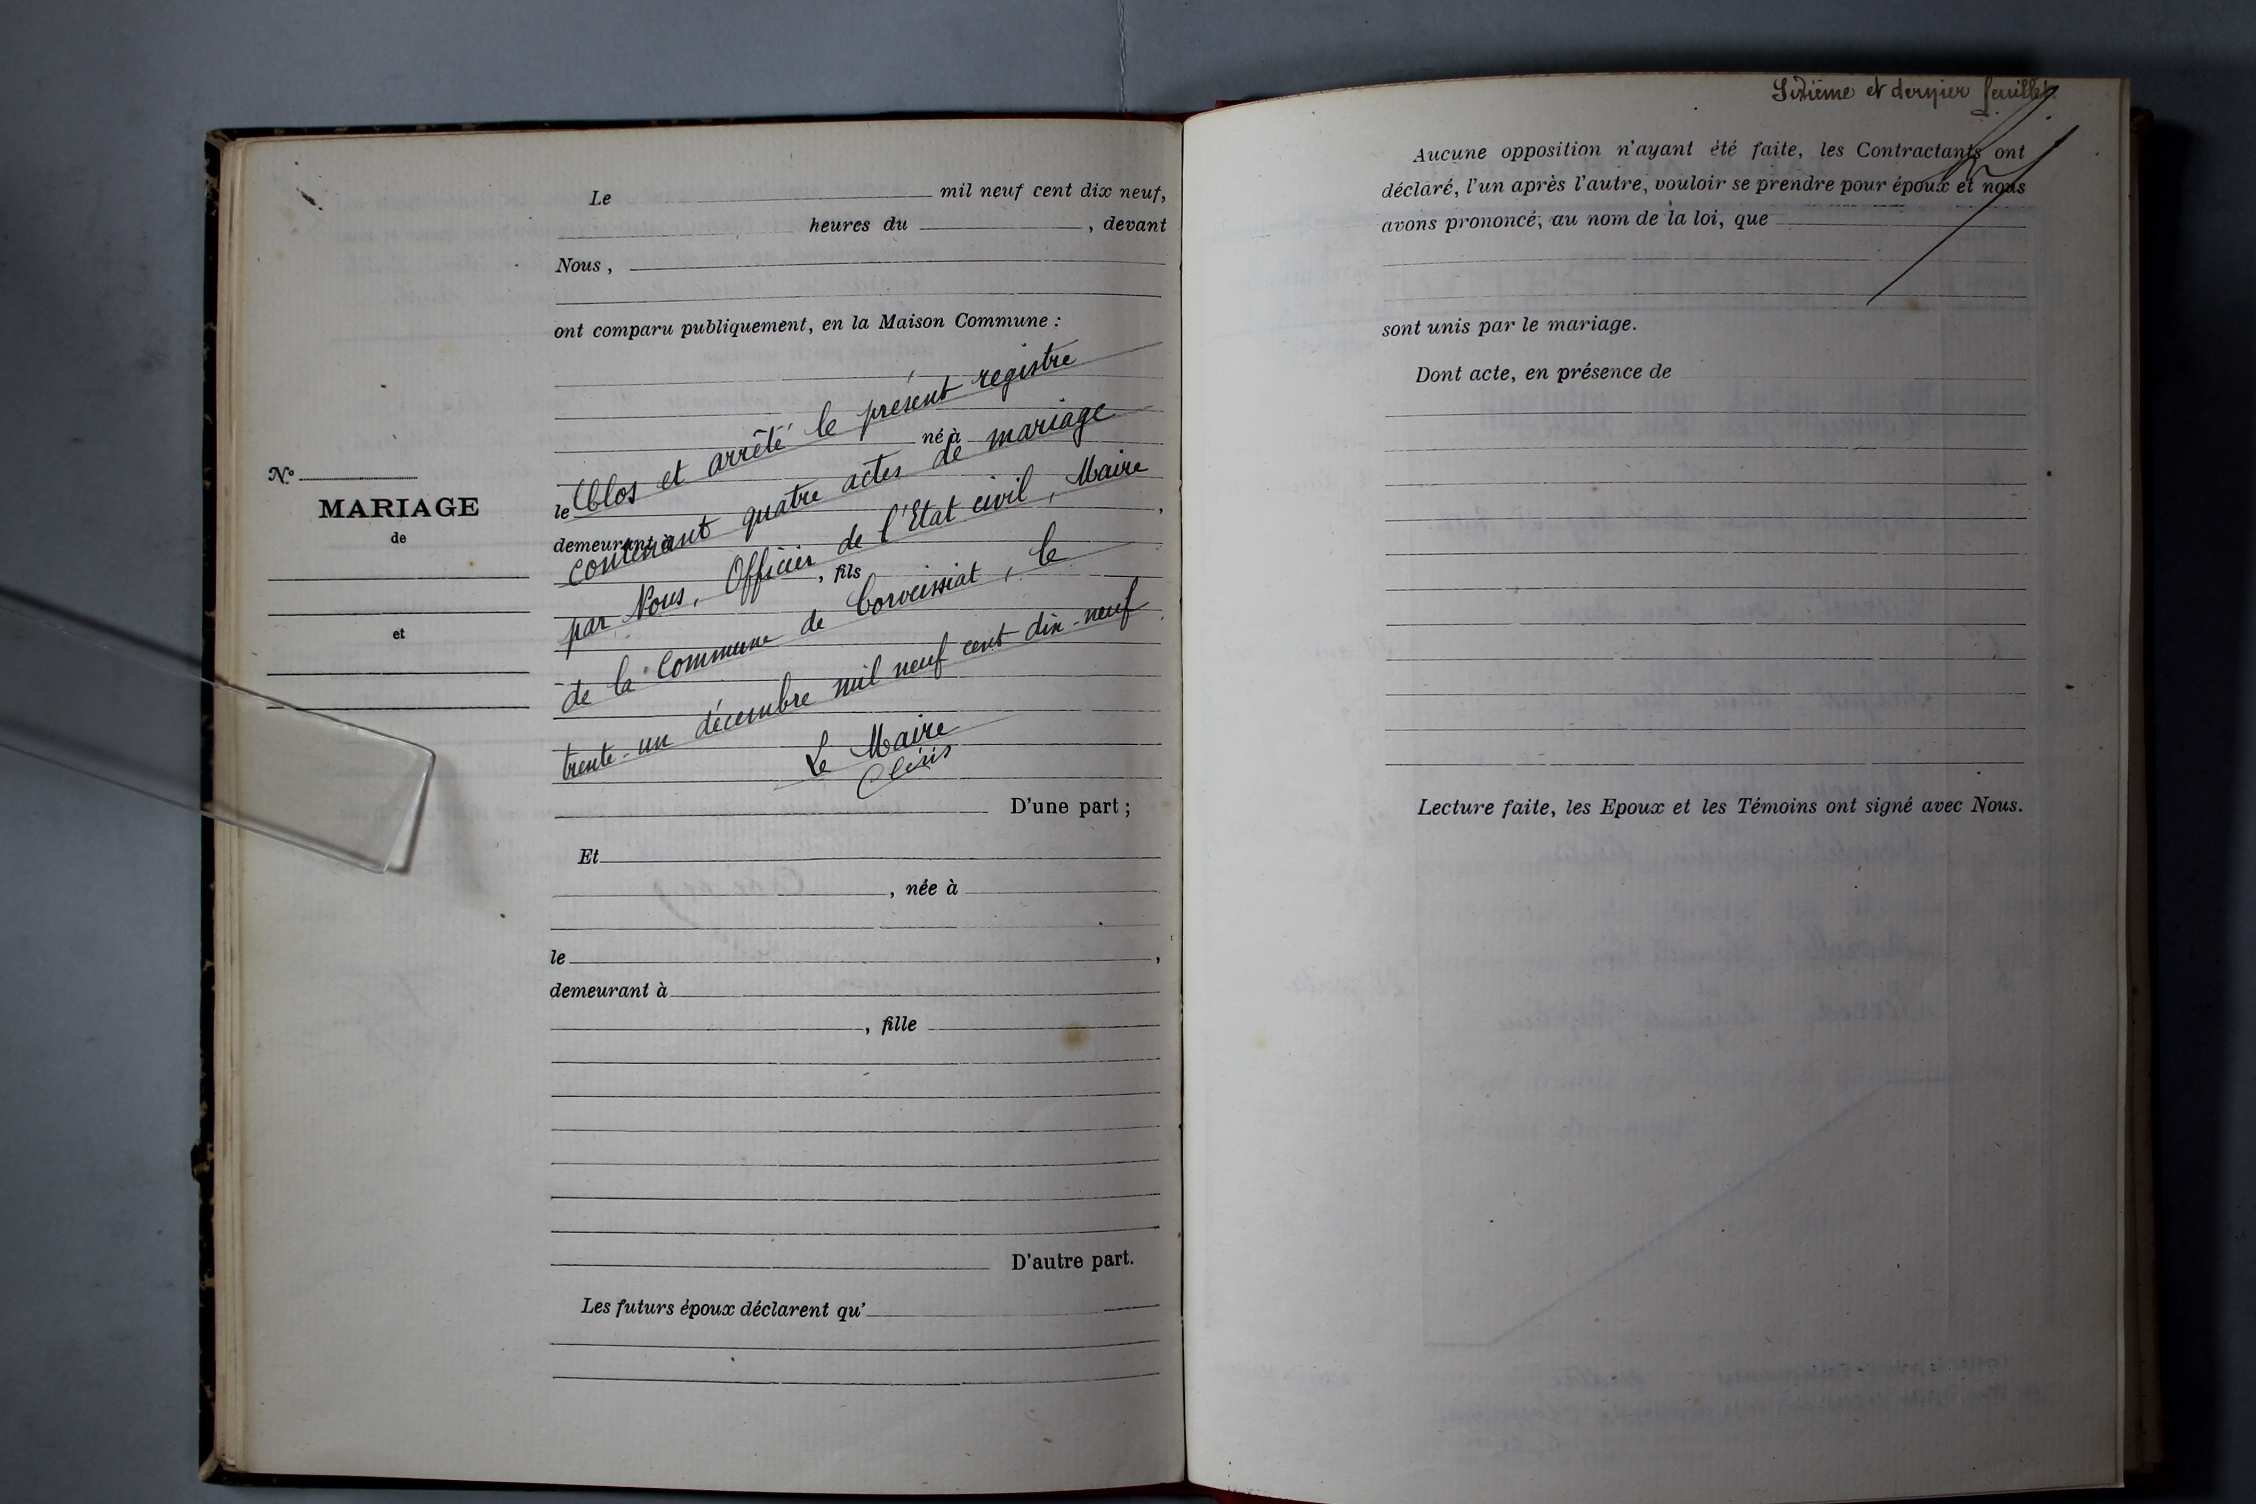 Le mil neuf cent dix neuf,
heures du , devant
Nous,
ont comparu publiquement, en la Maison Commune :
né à
le ,
demeurant à
, fils
Clos et arrêté le présent registre
contenant quatre actes de mariage
par Nous, Officier de l'Etat civil, Maire
de la Commune de Corveissiat, le
trente-un décembre mil neuf cent dix-neuf
Le Maire
D'une part ;
Et
, née à
le ,
demeurant à
, fille
D'autre part.
Les futurs époux déclarent qu'
N°
MARIAGE
de
et
Sixième et dernier feuillet.
Aucune opposition n'ayant été faite, les Contractants ont
déclaré, l'un après l'autre, vouloir se prendre pour époux et nous
avons prononcé, au nom de la loi, que
sont unis par le mariage.
Dont acte, en présence de
Lecture faite, les Epoux et les Témoins ont signé avec Nous.